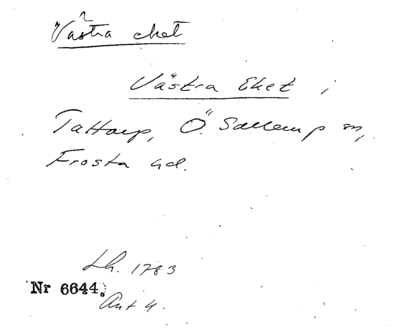 Västra eket
Västra Eket i
Tattarp, Ö. Sallerup sn,
Frosta hd.
Lh. 1783
Nr 6644.
Akt 4.